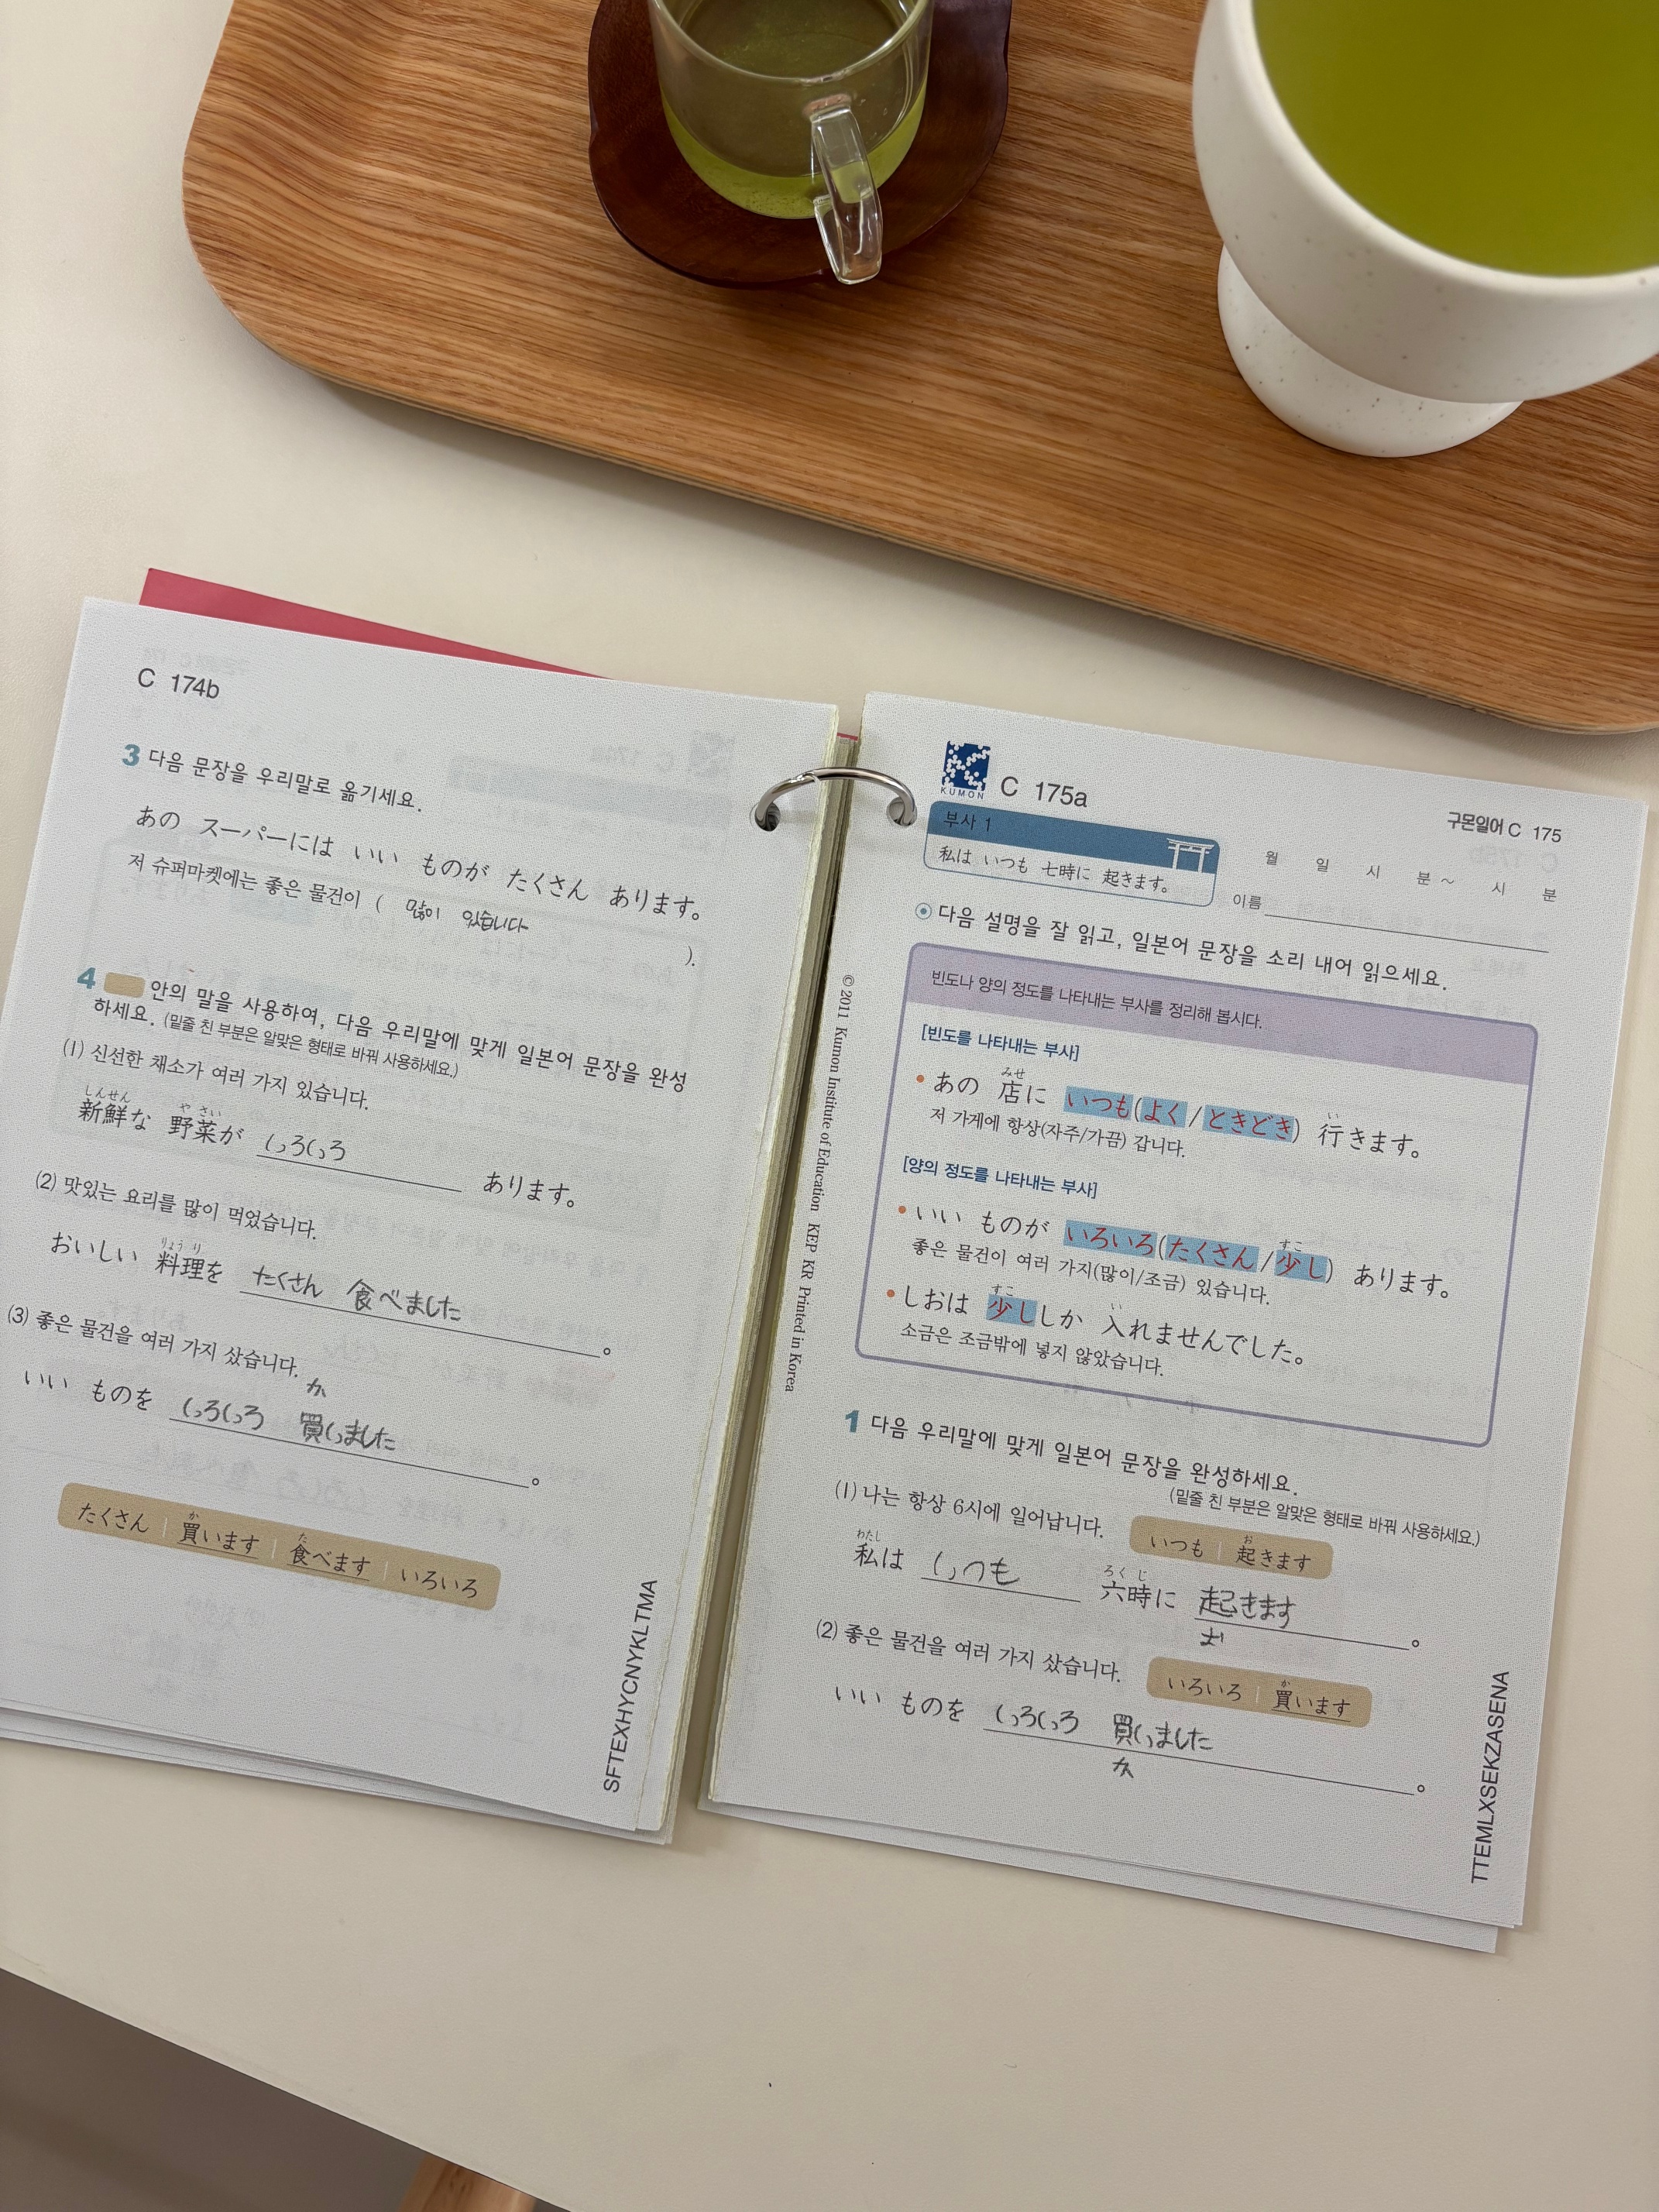 C 174b
3 다음 문장을 우리말로 옮기세요.
あの スーパーには いい ものが たくさん あります。
저 슈퍼마켓에는 좋은 물건이 ( 많이 있습니다 ).
4 안의 말을 사용하여, 다음 우리말에 맞게 일본어 문장을 완성
하세요. (밑줄 친 부분은 알맞은 형태로 바꿔 사용하세요.)
(1) 신선한 채소가 여러 가지 있습니다.
しんせん や さい
新鮮な 野菜が いろいろ あります。
(2) 맛있는 요리를 많이 먹었습니다.
りょう り
おいしい 料理を たくさん 食べました 。
(3) 좋은 물건을 여러 가지 샀습니다.
か
いい ものを いろいろ 買いました 。
か た
たくさん | 買います | 食べます | いろいろ
SFTEXHYCNYKLTMA
KUMON
C 175a
구몬일어 C 175
부사 1
私は いつも 七時に 起きます。
월 일 시 분 ~ 시 분
이름
다음 설명을 잘 읽고, 일본어 문장을 소리 내어 읽으세요.
빈도나 양의 정도를 나타내는 부사를 정리해 봅시다.
[빈도를 나타내는 부사]
みせ い
• あの 店に いつも(よく/ときどき) 行きます。
저 가게에 항상(자주/가끔) 갑니다.
[양의 정도를 나타내는 부사]
すこ
• いい ものが いろいろ(たくさん/少し) あります。
좋은 물건이 여러 가지(많이/조금) 있습니다.
すこ い
• しおは 少ししか 入れませんでした。
소금은 조금밖에 넣지 않았습니다.
1 다음 우리말에 맞게 일본어 문장을 완성하세요.
(밑줄 친 부분은 알맞은 형태로 바꿔 사용하세요.)
(1) 나는 항상 6시에 일어납니다.
お
いつも | 起きます
わたし ろく じ
私は いつも 六時に 起きます 。
お
(2) 좋은 물건을 여러 가지 샀습니다.
か
いろいろ | 買います
いい ものを いろいろ 買いました 。
か
TTEMLXSEKZASENA
© 2011 Kumon Institute of Education KEP KR Printed in Korea